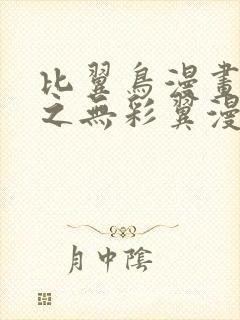 比翼鳥漫畫
之無彩翼漫
月中陰